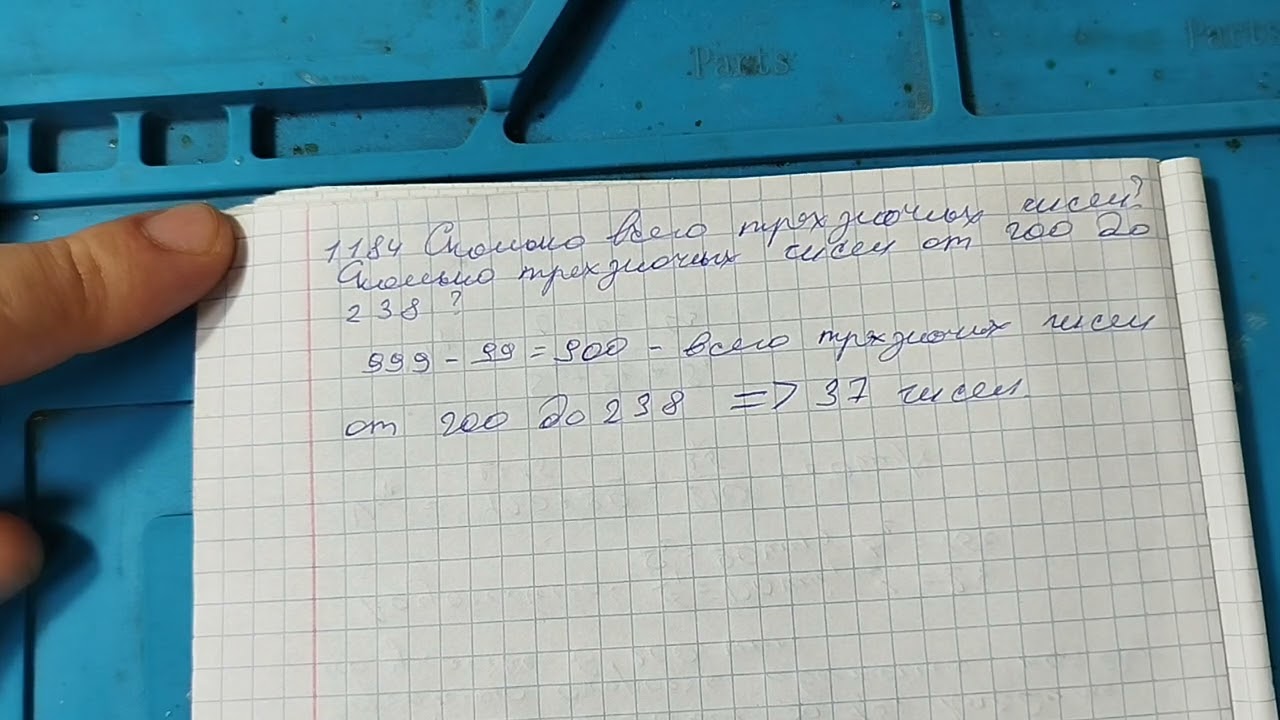 Parts
Parts
1184 Сколько всего трёхзначных чисел?
Сколько трехзначных чисел от 200 до
238 ?
999 - 99 = 900 - всего трёхзначных чисел
от 200 до 238 => 37 чисел.